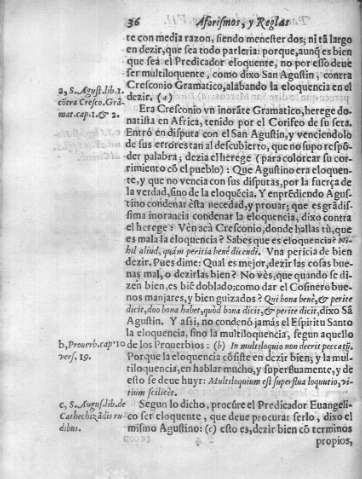 36 Aforismos, y Reglas
te con media razon, siendo menester dos; ni tã largo
en dezir, que sea todo parleria: porque, aunq̃ es bien
que sea el Predicador eloquente, no por esso deue
ser multiloquente, como dixo San Agustin, contra
Cresconio Gramatico, alabando la eloquencia en el
dezir. (a)
a, S. Agust. lib. 1.
cõtra Cresco. Grã
mat. cap. 1. & 2.
Era Cresconio vn inorãte Gramatico, herege do-
natista en Africa, tenido por el Corifeo de su secta.
Entrò en disputa con el San Agustin, y venciendolo
de sus errores tan al descubierto, que no supo respõ-
der palabra; dezia el herege (para colorear su cor-
rimiento cõ el pueblo): Que Agustino era eloquen-
te, y que no vencia con sus disputas, por la fuerça de
la verdad, sino de la eloquẽcia. Y enprẽdiendo Agus-
tino condenar esta necedad, y prouar; que es grãdis-
sima inorancia condenar la eloquencia, dixo contra
el herege: Vèn acà Cresconio, donde hallas tù, que
es mala la eloquencia? Sabes que es eloquencia? Ni-
hil aliud, quàm peritia benè dicendi. Vna pericia de bien
dezir. Pues dime: Qual es mejor, dezir las cosas bue-
nas mal, o dezirlas bien? No vès, que quando se di-
zen bien, es biẽ doblado: como dar el Cosinero bue-
nos manjares, y bien guizados? Qui bona benè, & peritè
dicit, duo bona habet, quòd bona dicit, & peritè dicit, dixo Sã
Agustin. Y assi, no condenò jamàs el Espiritu Santo
la eloquencia, sino la multiloquencia, segun aquello
de los Prouerbios: (b) In multiloquio non deerit peccatũ.
b, Prouerb. cap. 10
vers. 19.
Porque la eloquencia cõsiste en dezir bien; y la mul-
tiloquencia, en hablar mucho, y superfluamente, y de
esto se deue huyr: Multiloquium est superflua loquutio, vi-
tium scilicèt.
c, S. Augus. lib. de
Cathechizãdis ru
dibus.
Segun lo dicho, procùre el Predicador Euangeli-
co ser eloquente, que deue procurar serlo, dixo el
mismo Agustino: (c) esto es, dezir bien cõ terminos
propios,